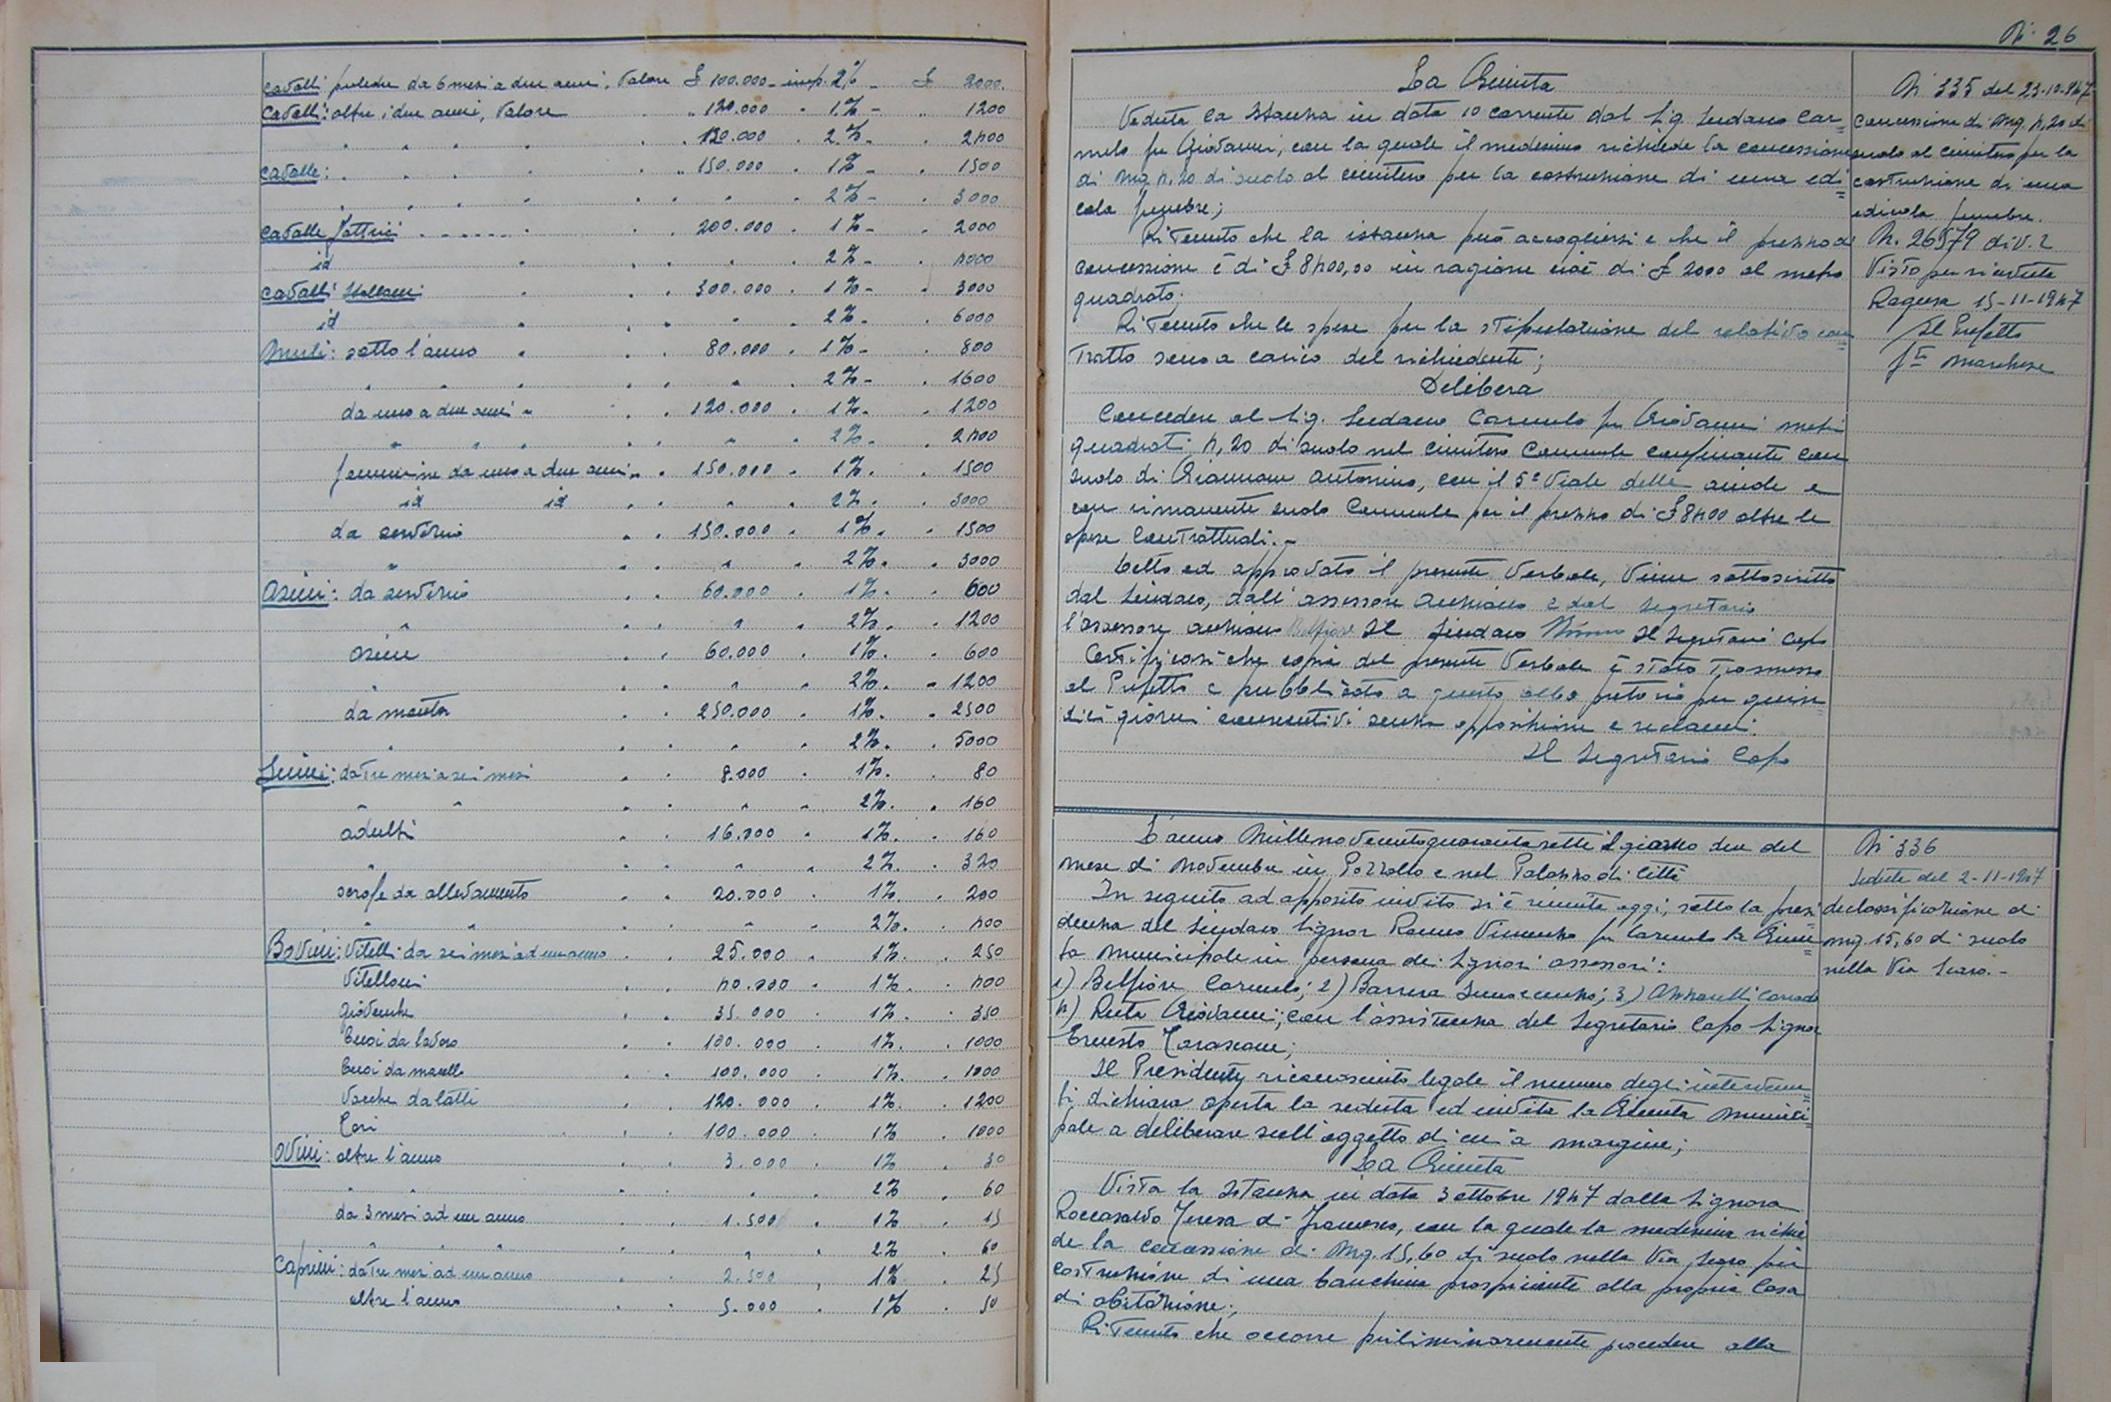 Cavalli puledri da 6 mesi a due anni, Valore £ 100.000 - imp. 2% - £ 2000
Cavalli: oltre i due anni, Valore " 120.000 - 1% - " 1200
" " " " 120.000 " 2% - " 2400
Cavalle: " " " " 150.000 " 1% - " 1500
" " " " " " " 2% - " 3000
Cavalle fattrici " 200.000 " 1% - " 2000
id " " " " 2% - " 4000
Cavalli Stalloni " " 300.000 " 1% - " 3000
id " " " " 2% - " 6000
Muli: sotto l'anno " " " 80.000 " 1% - " 800
" " " " " " 2% - " 1600
da uno a due anni " " " 120.000 " 1% - " 1200
" " " " " " 2% - " 2400
femmine da uno a due anni " " 150.000 " 1% " 1500
id id " " " " 2% " 3000
da servizio " " 150.000 " 1% " 1500
" " " " 2% " 3000
Asini: da servizio " " 60.000 " 1% " 600
" " " " " 2% " 1200
asine " " 60.000 " 1% " 600
" " " " " 2% " 1200
da monta " " 250.000 " 1% " 2500
" " " " " 2% " 5000
Suini: da tre mesi a sei mesi " " 8.000 " 1% " 80
" " " " " " 2% " 160
adulti " " 16.000 " 1% " 160
" " " " " 2% " 320
scrofe da allevamento " " 20.000 " 1% " 200
" " " " " " 2% " 400
Bovini: Vitelli da sei mesi ad un anno " " 25.000 " 1% " 250
Vitelloni " " 40.000 " 1% " 400
giovenche " " 35.000 " 1% " 350
buoi da lavoro " " 100.000 " 1% " 1000
buoi da macello " " 100.000 " 1% " 1000
Vacche da latte " " 120.000 " 1% " 1200
Tori " " 100.000 " 1% " 1000
Ovini: oltre l'anno " " 3.000 " 1% " 30
" " " " " 2% " 60
da 3 mesi ad un anno " " 1.500 " 1% " 15
" " " " " " 2% " 60
Caprini: da tre mesi ad un anno " " 2.500 " 1% " 25
oltre l'anno " " 5.000 " 1% " 50
N. 26
La Giunta
Veduta la Istanza in data 10 corrente dal Sig. Sudano Car=
melo fu Giovanni, con la quale il medesimo richiede la concessione
di mq 4,20 di suolo al cimitero per la costruzione di una edi=
cola funebre;
Ritenuto che la istanza può accogliersi e che il prezzo di
concessione è di £ 8400,00 in ragione cioè di £ 2000 al metro
quadrato;
Ritenuto che le spese per la stipulazione del relativo con=
tratto sono a carico del richiedente;
Delibera
Concedere al Sig. Sudano Carmelo fu Giovanni metri
quadrati 4,20 di suolo nel cimitero Comunale confinante con
suolo di Giannone Antonino, con il 5° Viale delle aiuole e
con rimanente suolo Comunale per il prezzo di £ 8400 oltre le
spese contrattuali. -
Letto ed approvato il presente Verbale, viene sottoscritto
dal Sindaco, dall'assessore anziano e dal Segretario
l'assessore anziano Belfiore Il Sindaco Il Segretario Capo
Certificasi che copia del presente Verbale è stato trasmesso
al Prefetto e pubblicato a questo albo pretorio per quin=
dici giorni consecutivi senza opposizione e reclami.
Il Segretario Capo
N. 335 del 23-10-947
Concessione di mq. 4,20 di
suolo al cimitero per la
costruzione di una
edicola funebre.
N. 26579 div. 2
Visto per ricevuta
Ragusa 15-11-1947
Il Prefetto
fto Marchese
L'anno millenovecentoquarantasette il giorno due del
mese di novembre in Pozzallo e nel Palazzo di Città
In seguito ad apposito invito si è riunita oggi, sotto la presi=
denza del Sindaco Signor Romeo Vincenzo fu Carmelo la Giun=
ta municipale in persona dei Signori assessori:
1) Belfiore Carmelo; 2) Barrera Innocenzo; 3) Azzarelli Corrado
4) Ruta Giovanni; con l'assistenza del Segretario Capo Signor
Ernesto Tarascone;
Il Presidente, riconosciuto legale il numero degli intervenu=
ti dichiara aperta la seduta ed invita la Giunta munici=
pale a deliberare sull'oggetto di cui a margine;
La Giunta
Vista la Istanza in data 3 ottobre 1947 dalla Signora
Roccasalvo Teresa di Francesco, con la quale la medesima richie
de la concessione di mq. 15,60 di suolo nella Via Scaro per
costruzione di una banchina prospiciente alla propria Casa
di abitazione;
Ritenuto che occorre preliminarmente procedere alla
N. 336
Seduta del 2-11-1947
declassificazione di
mq. 15,60 di suolo
nella Via Scaro. -